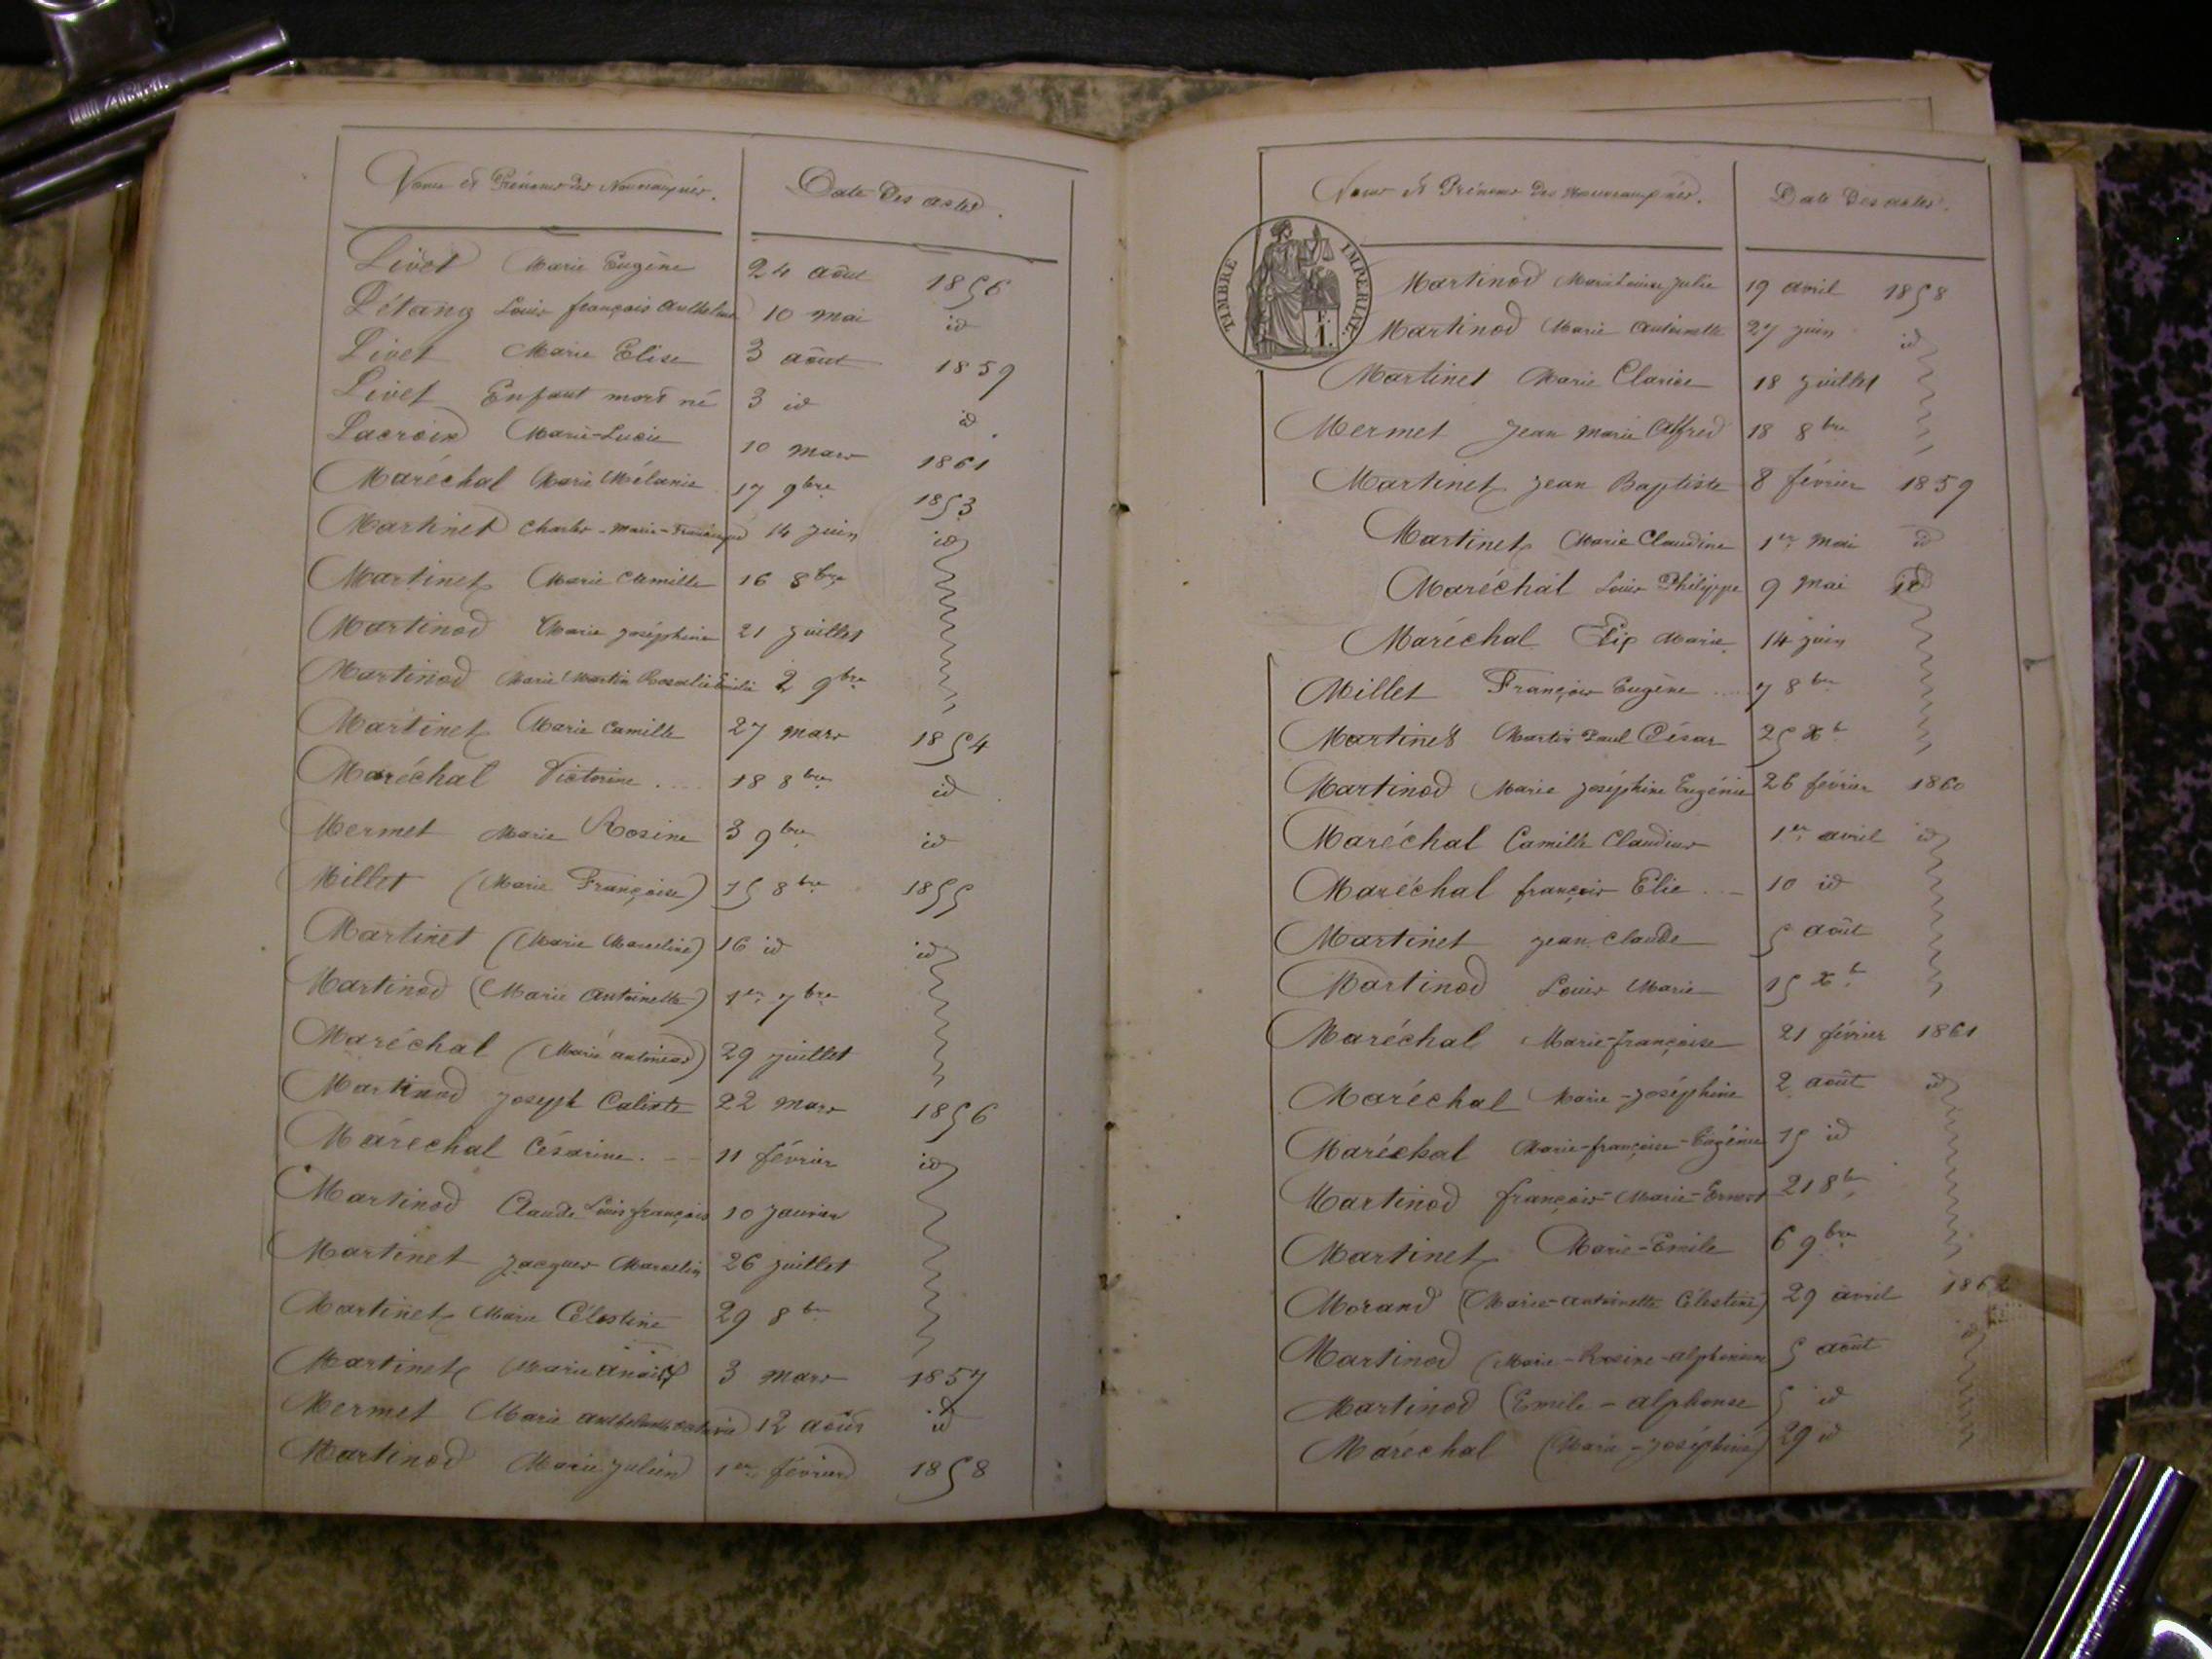 Noms et Prénoms des Nouveaux nés.
Date des actes.
Livet Marie Eugène 24 août 1856
Létang Louis françois Anthelme 10 mai id
Livet Marie Elise 3 août 1859
Livet Enfant mort né 3 id id
Lacroix Marie-Lucie 10 mars 1861
Maréchal Marie Mélanie 17 9bre 1853
Martinet Charles-Marie- 14 juin id
Martinet Marie Camille 16 8bre
Martinod Marie joséphine 21 juillet
Martinod Marie Martin Rosalie Emilie 2 9bre
Martinet Marie Camille 27 mars 1854
Maréchal Victorine .... 18 8bre id
Mermet Marie Rosine 3 9bre id
Millet (Marie Françoise) 15 8bre 1855
Martinet (Marie Marceline) 16 id id
Martinod (Marie Antoinette) 1er 7bre
Maréchal (Marie) 29 juillet
Martinod Joseph Calixte 22 mars 1856
Maréchal Césarine. 11 février id
Martinod Claude Louis françois 10 janvier
Martinet Jacques Marcelin 26 juillet
Martinet Marie Célestine 29 8bre
Martinet Marie Anaïs 3 mars 1857
Mermet Marie 12 août id
Martinod Marie Julien 1er février 1858
Noms et Prénoms des Nouveaux nés.
Date des actes.
TIMBRE IMPÉRIAL
F.
1.
Martinod Marie Louise Julie 19 avril 1858
Martinod Marie Antoinette 27 juin id
Martinet Marie Clarisse 18 juillet
Mermet Jean Marie Alfred 18 8bre
Martinet Jean Baptiste 8 février 1859
Martinet Marie Claudine 1er mai id
Maréchal Louis Philippe 9 mai id
Maréchal Marie 14 juin
Millet François Eugène .... 7 8bre
Martinet Martin Paul César 25 Xb
Martinod Marie Joséphine Eugénie 26 février 1860
Maréchal Camille Claudius 1er avril id
Maréchal françois Elie 10 id
Martinet Jean Claude 5 août
Martinod Louis Marie 15 Xb
Maréchal Marie-françoise 21 février 1861
Maréchal Marie-Joséphine 2 août id
Maréchal Marie-françoise-Eugénie 15 id
Martinod françois-Marie-Ernest 21 8bre
Martinet Marie-Emile 6 9bre
Morand (Marie-Antoinette Célestine) 29 avril 1862
Martinod (Marie-Rosine-alphonsine 5 août id
Martinod (Emile-alphonse 5 id
Maréchal (Marie-Joséphine) 29 id